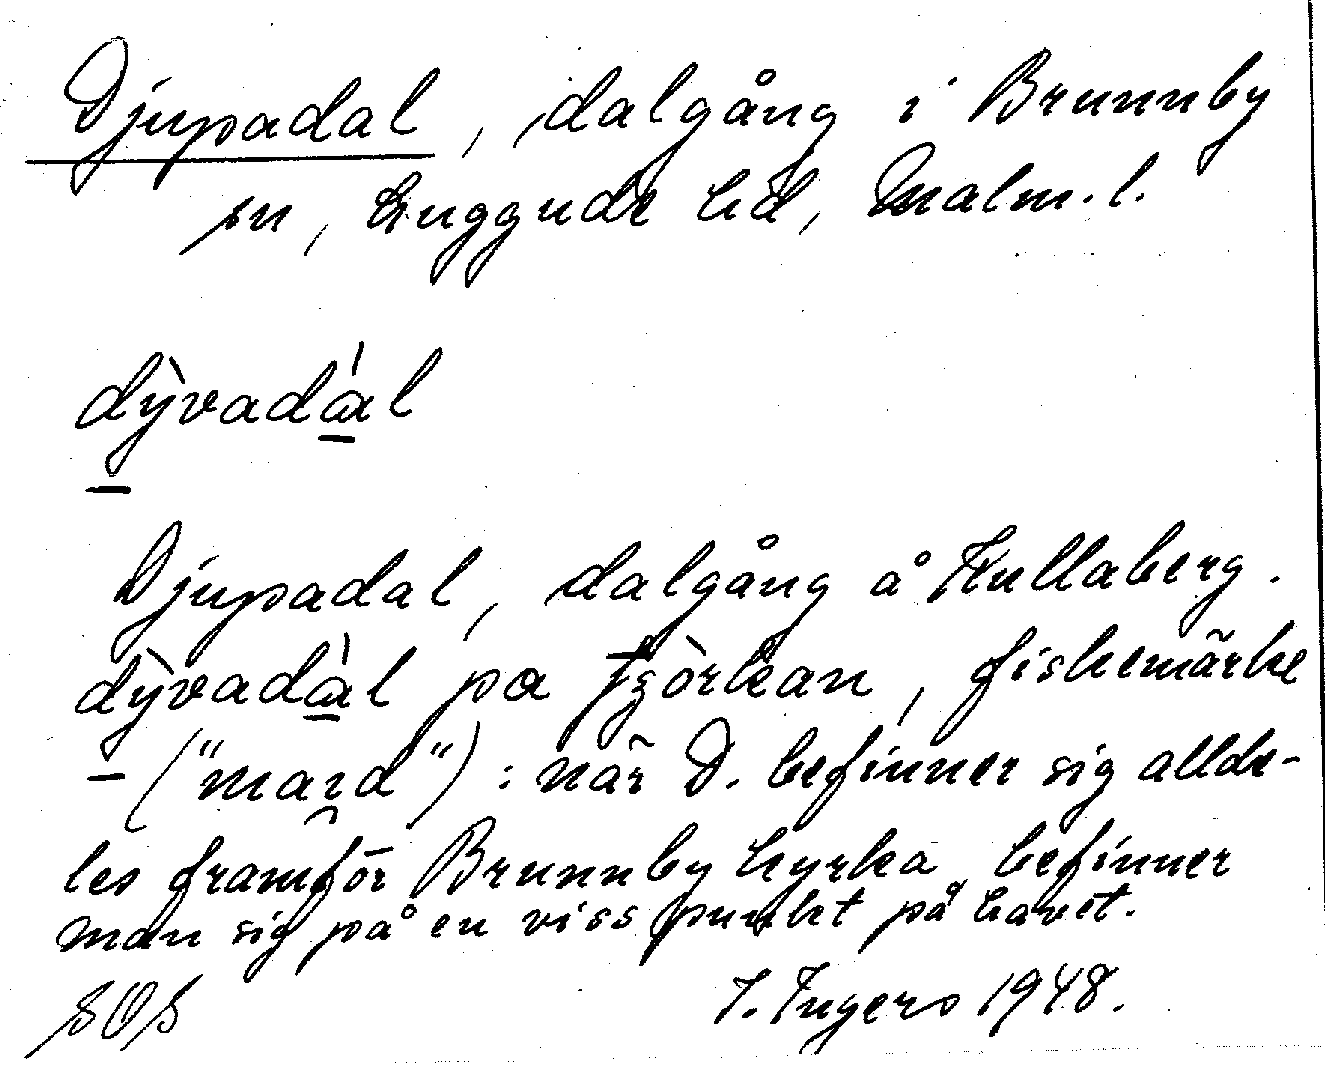 Djupadal, dalgång i Brunnby
sn, Luggude hd, Malm. l.
dỳvadál
Djupadal, dalgång å Kullaberg.
dỳvadál pa
fiskemärke
("mard"): när D. befinner sig allde-
les framför Brunnby kyrka, befinner
man sig på en viss punkt på havet.
SOS I. Ingers 1948.